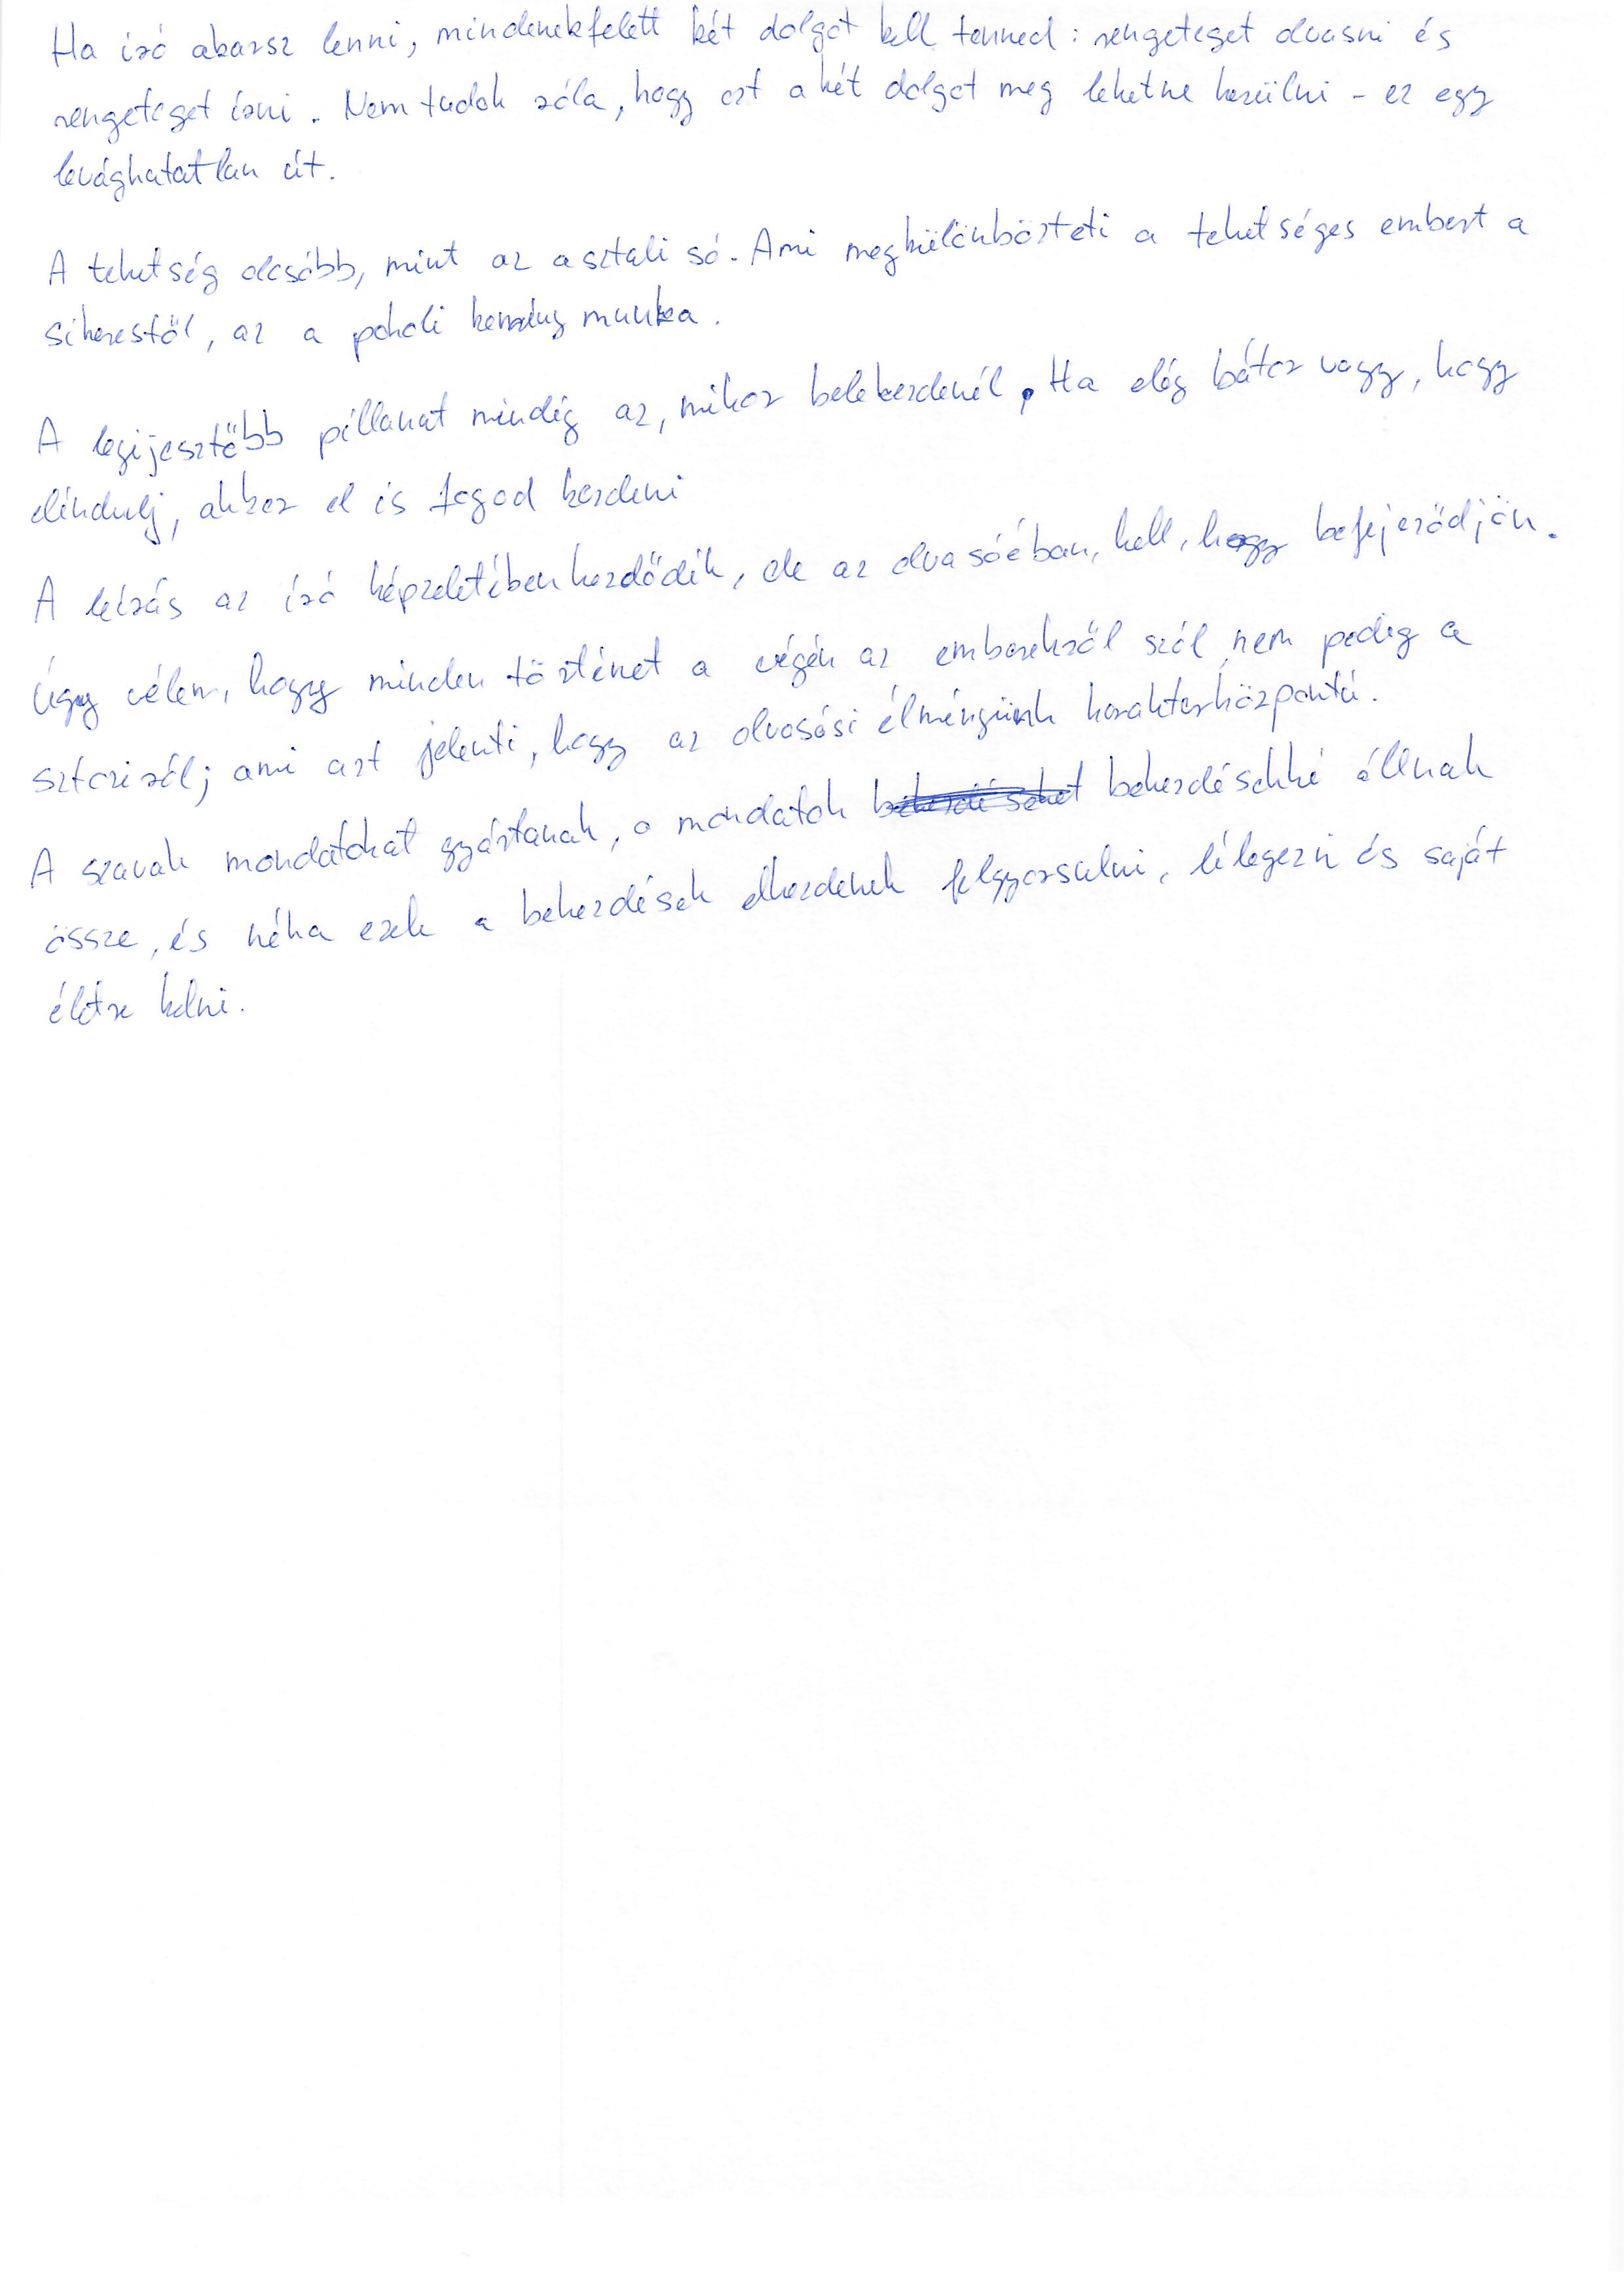 Ha író akarsz lenni, mindenekfelett két dolgot kell tenned: rengeteget olvasni és
rengeteget írni. Nem tudok róla, hogy ezt a két dolgot meg lehetne kerülni - ez egy
levághatatlan út.
A tehetség olcsóbb, mint az asztali só. Ami megkülönbözteti a tehetséges embert a
sikerestől, az a pokoli kemény munka.
A legijesztőbb pillanat mindig az, mikor belekezdenél. Ha elég bátor vagy, hogy
elindulj, akkor el is fogod kezdeni
A leírás az író képzeletében kezdődik, de az olvasóéban, kell, hogy befejeződjön.
Úgy vélem, hogy minden történet a végén az emberekről szól, nem pedig a
sztoriról; ami azt jelenti, hogy az olvasási élményünk karakterközpontú.
A szavak mondatokat gyártanak, a mondatok bekezdéseket bekezdésekké állnak
össze, és néha ezek a bekezdések elkezdenek felgyorsulni, lélegezni és saját
életre kelni.